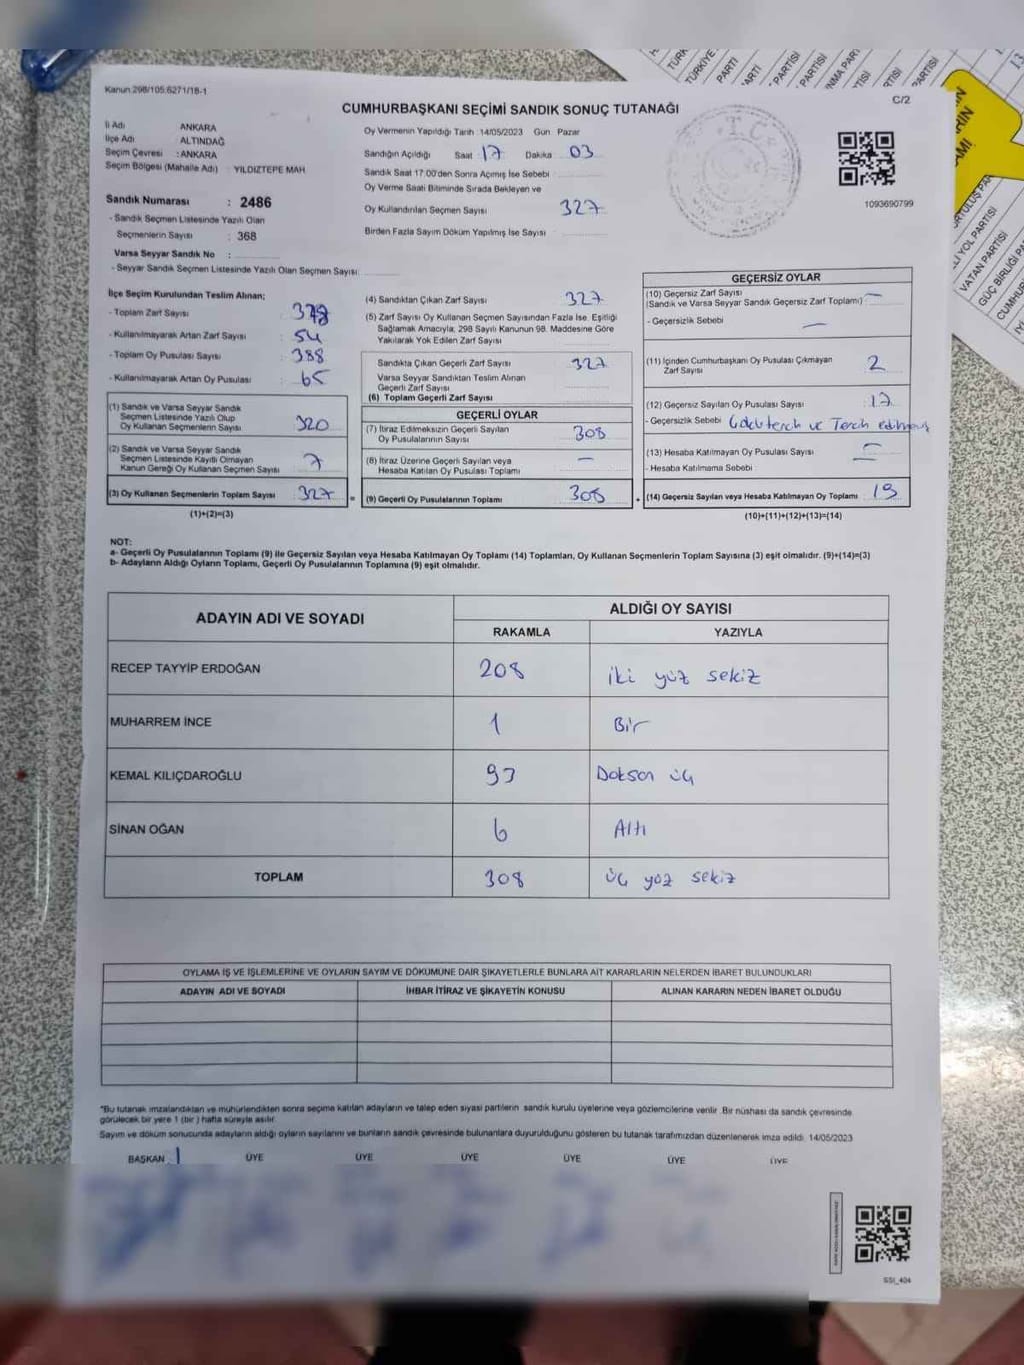 Kanun 298/105.6271/18-1
C/2
CUMHURBAŞKANI SEÇİMİ SANDIK SONUÇ TUTANAĞI
İl Adı ANKARA
İlçe Adı ALTINDAĞ
Seçim Çevresi : ANKARA
Seçim Bölgesi (Mahalle Adı) : YILDIZTEPE MAH.
Sandık Numarası : 2486
- Sandık Seçmen Listesinde Yazılı Olan
Seçmenlerin Sayısı : 368
Varsa Seyyar Sandık No :
- Seyyar Sandık Seçmen Listesinde Yazılı Olan Seçmen Sayısı:
Oy Vermenin Yapıldığı Tarih 14/05/2023 Gün Pazar
Sandığın Açıldığı Saat 17 Dakika 03
Sandık Saat 17.00'den Sonra Açımış İse Sebebi
Oy Verme Saati Bitiminde Sırada Bekleyen ve
Oy Kullandırılan Seçmen Sayısı 327
Birden Fazla Sayım Döküm Yapılmış İse Sayısı
T.C.
1093690799
İlçe Seçim Kurulundan Teslim Alınan;
- Toplam Zarf Sayısı
- Kullanılmayarak Artan Zarf Sayısı : 54
- Toplam Oy Pusulası Sayısı : 388
- Kullanılmayarak Artan Oy Pusulası : 65
(1) Sandık ve Varsa Seyyar Sandık
Seçmen Listesinde Yazılı Olup
Oy Kullanan Seçmenlerin Sayısı 320
(2) Sandık ve Varsa Seyyar Sandık
Seçmen Listesinde Kayıtlı Olmayan
Kanun Gereği Oy Kullanan Seçmen Sayısı 7
(3) Oy Kullanan Seçmenlerin Toplam Sayısı 327 =
(1)+(2)=(3)
(4) Sandıktan Çıkan Zarf Sayısı 327
(5) Zarf Sayısı Oy Kullanan Seçmen Sayısından Fazla İse. Eşitliği
Sağlamak Amacıyla, 298 Sayılı Kanunun 98. Maddesine Göre
Yakılarak Yok Edilen Zarf Sayısı
Sandıkta Çıkan Geçerli Zarf Sayısı 327
Varsa Seyyar Sandıktan Teslim Alınan
Geçerli Zarf Sayısı
(6) Toplam Geçerli Zarf Sayısı
GEÇERLİ OYLAR
(7) İtiraz Edilmeksizin Geçerli Sayılan
Oy Pusulalarının Sayısı 308
(8) İtiraz Üzerine Geçerli Sayılan veya
Hesaba Katılan Oy Pusulası Toplamı —
(9) Geçerli Oy Pusulalarının Toplamı 308 +
GEÇERSİZ OYLAR
(10) Geçersiz Zarf Sayısı
(Sandık ve Varsa Seyyar Sandık Geçersiz Zarf Toplamı) —
- Geçersizlik Sebebi —
(11) İçinden Cumhurbaşkanı Oy Pusulası Çıkmayan
Zarf Sayısı 2
(12) Geçersiz Sayılan Oy Pusulası Sayısı : 17
- Geçersizlik Sebebi ve Terch edilmeyiş
(13) Hesaba Katılmayan Oy Pusulası Sayısı —
- Hesaba Katılmama Sebebi
(14) Geçersiz Sayılan veya Hesaba Katılmayan Oy Toplamı : 19
(10)+(11)+(12)+(13)=(14)
NOT:
a- Geçerli Oy Pusulalarının Toplamı (9) ile Geçersiz Sayılan veya Hesaba Katılmayan Oy Toplamı (14) Toplamları, Oy Kullanan Seçmenlerin Toplam Sayısına (3) eşit olmalıdır. (9)+(14)=(3)
b- Adayların Aldığı Oyların Toplamı, Geçerli Oy Pusulalarının Toplamına (9) eşit olmalıdır.
ADAYIN ADI VE SOYADI
ALDIĞI OY SAYISI
RAKAMLA YAZIYLA
RECEP TAYYİP ERDOĞAN 208 iki yüz sekiz
MUHARREM İNCE 1 Bir
KEMAL KILIÇDAROĞLU 93 Doksan üç
SİNAN OĞAN 6 Altı
TOPLAM 308 üç yüz sekiz
OYLAMA İŞ VE İŞLEMLERİNE VE OYLARIN SAYIM VE DÖKÜMÜNE DAİR ŞİKAYETLERLE BUNLARA AİT KARARLARIN NELERDEN İBARET BULUNDUKLARI
ADAYIN ADI VE SOYADI İHBAR İTİRAZ VE ŞİKAYETİN KONUSU ALINAN KARARIN NEDEN İBARET OLDUĞU
*Bu tutanak imzalandıktan ve mühürlendikten sonra seçime katılan adayların ve talep eden siyasi partilerin sandık kurulu üyelerine veya gözlemcilerine verilir. Bir nüshası da sandık çevresinde
görülecek bir yere 1 (bir) hafta süreyle asılır.
Sayım ve döküm sonucunda adayların aldığı oyların sayılarını ve bunların sandık çevresinde bulunanlara duyurulduğunu gösteren bu tutanak tarafımızdan düzenlenerek imza edildi. 14/05/2023
BAŞKAN ÜYE ÜYE ÜYE ÜYE ÜYE ÜYE
SSI_404
TÜRKİYE
PARTİ
PARTİSİ
PARTİSİ
PARTİSİ
YOL PARTİSİ
VATAN PARTİSİ
GÜÇ BİRLİĞİ
CUMHUR